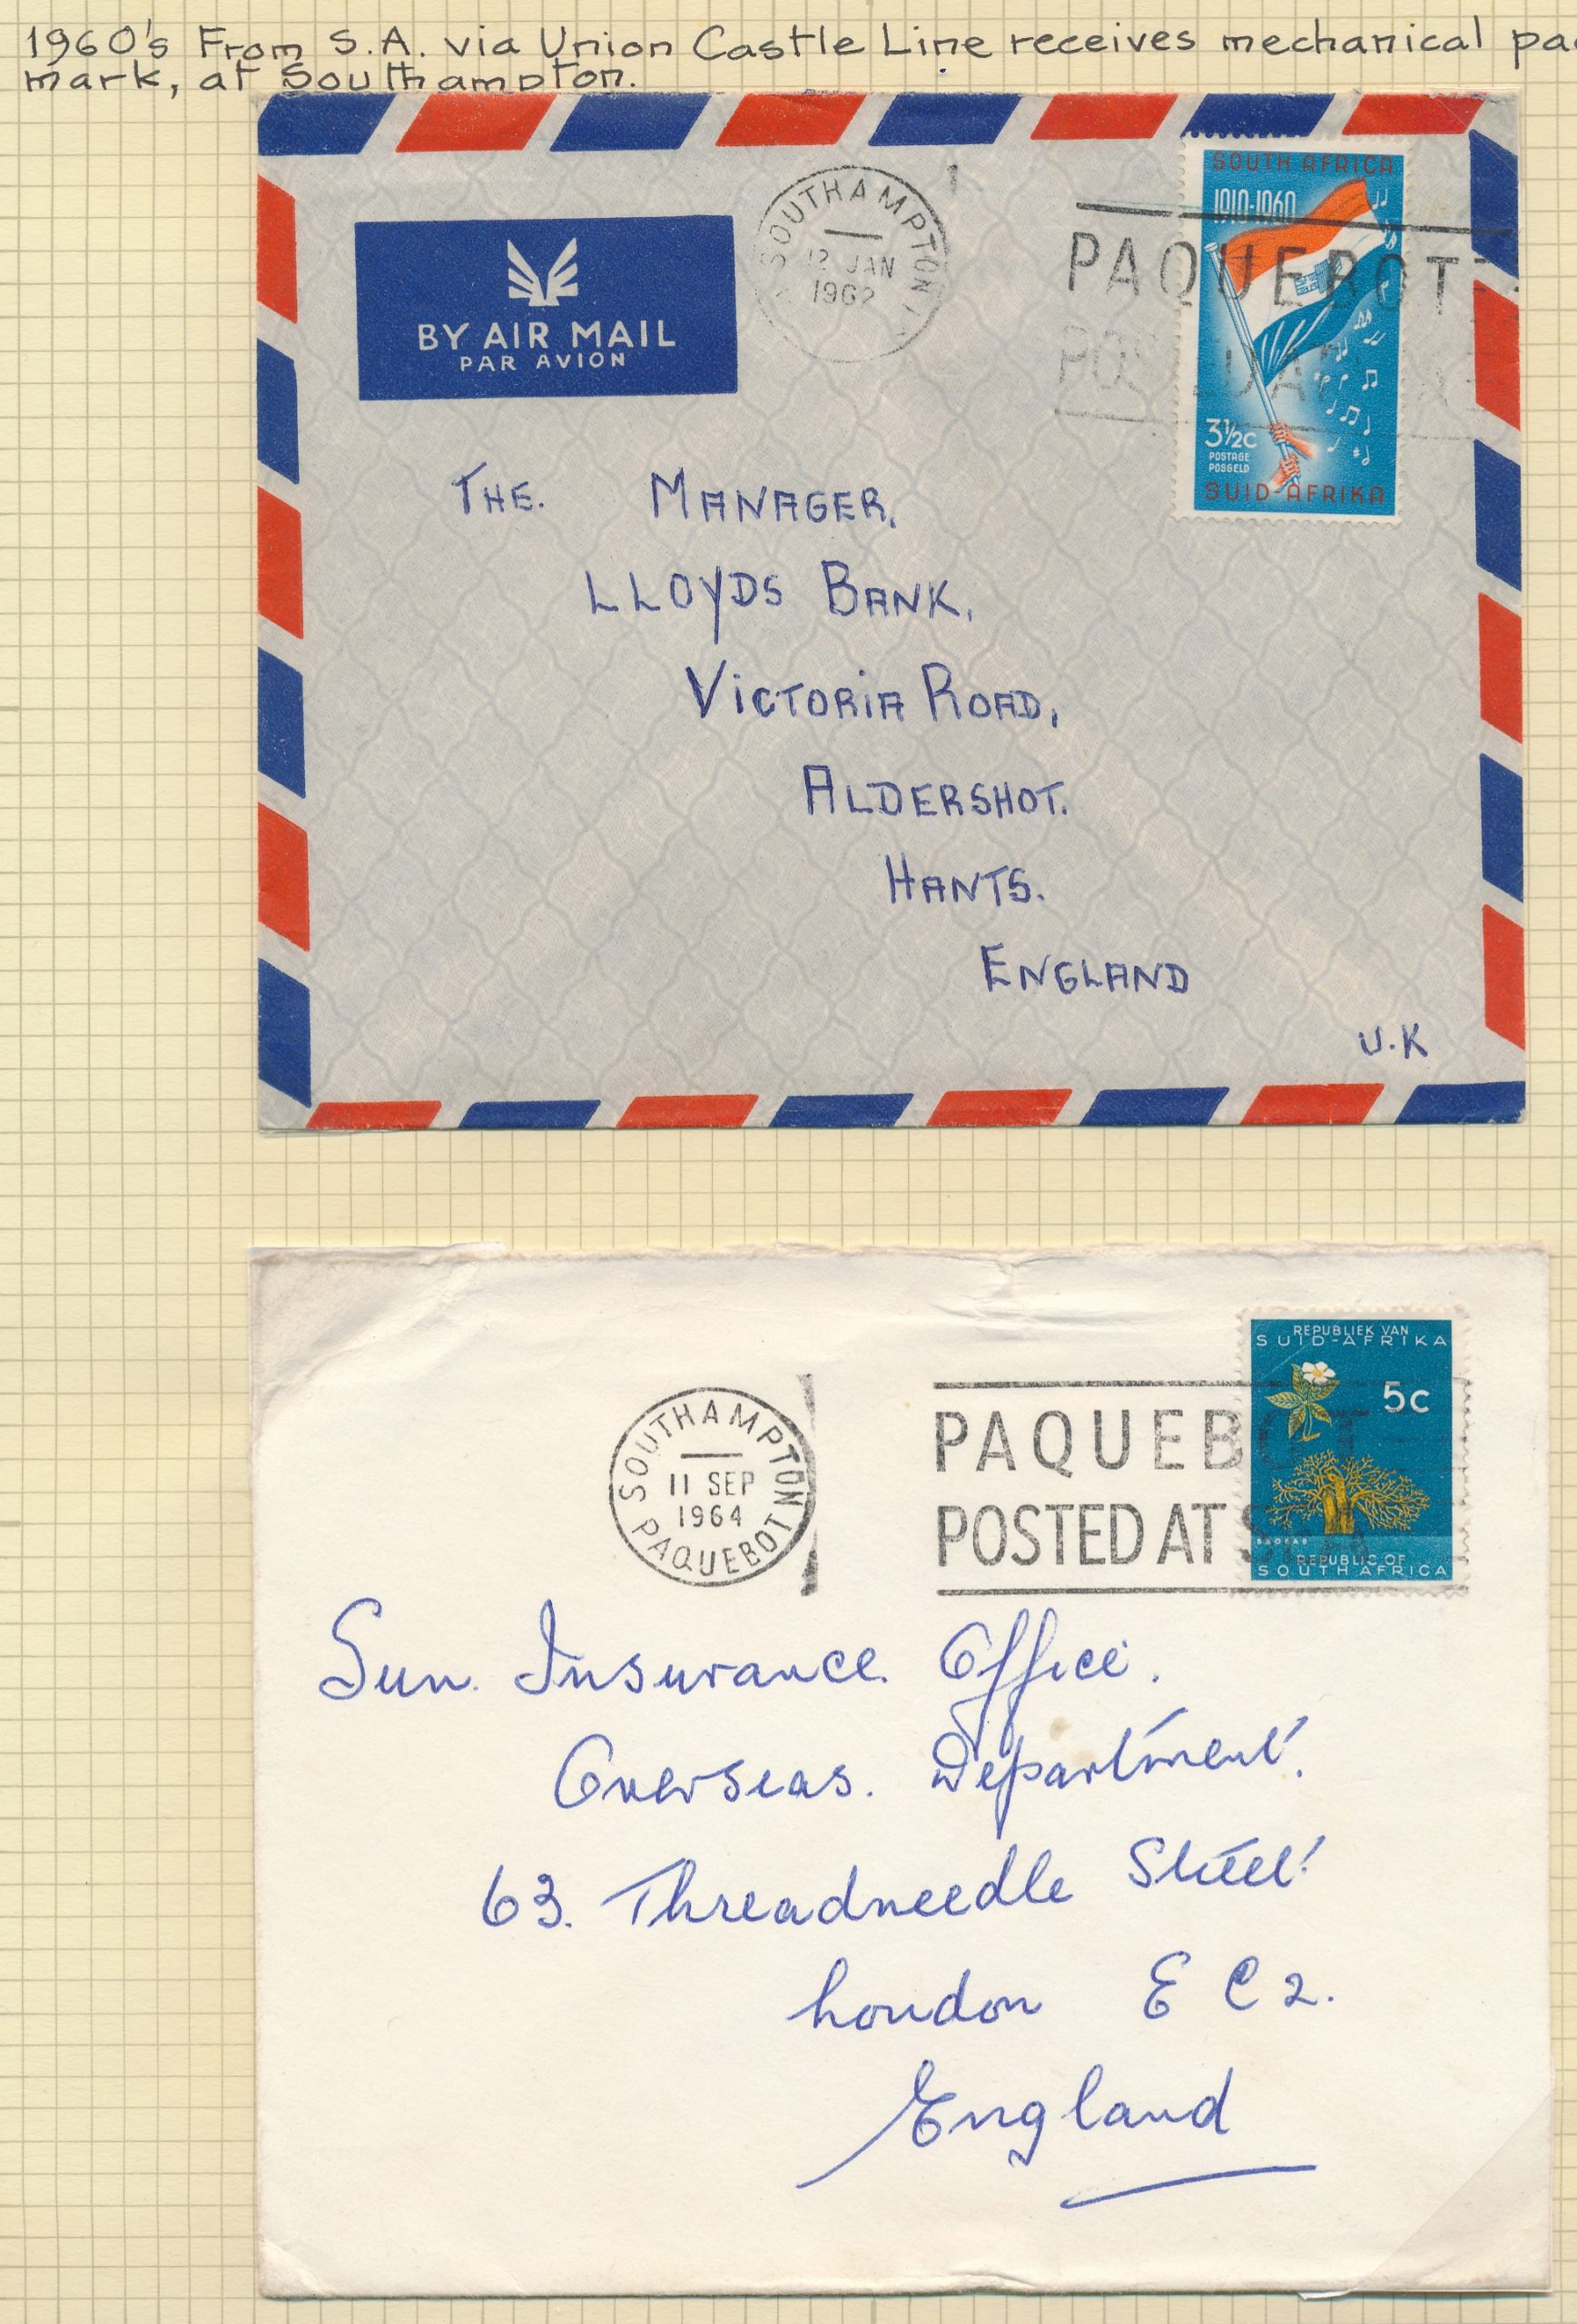 1960's From S.A. via Union Castle Line receives mechanical
mark, at Southampton.
BY AIR MAIL
PAR AVION
SOUTHAMPTON
12 JAN
1962
PAQUEBOT
SOUTH AFRICA
1910-1960
3½c
POSTAGE
POSGELD
SUID-AFRIKA
THE. MANAGER,
LLOYDS BANK,
VICTORIA ROAD,
ALDERSHOT.
HANTS.
ENGLAND
U.K
SOUTHAMPTON
11 SEP
1964
PAQUEBOT
PAQUEBOT
POSTED AT SEA
REPUBLIEK VAN
SUID-AFRIKA
5c
BAOBAB
REPUBLIC OF
SOUTH AFRICA
Sun. Insurance. Office.
Overseas. Department.
63. Threadneedle Street.
London E C 2.
England